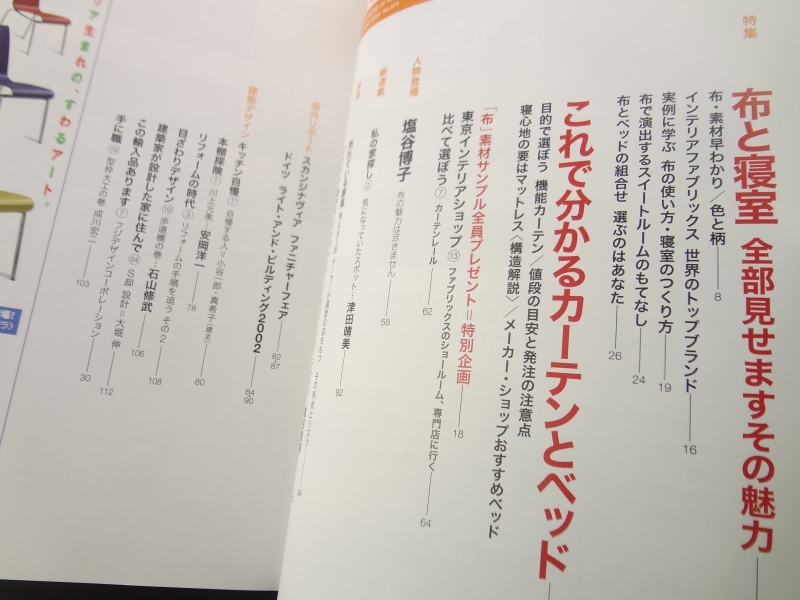 特集
布と寝室 全部見せますその魅力
布・素材早わかり/色と柄 8
インテリアファブリックス 世界のトップブランド 16
実例に学ぶ 布の使い方・寝室のつくり方 19
布で演出するスイートルームのもてなし 24
布とベッドの組合せ 選ぶのはあなた 26
これで分かるカーテンとベッド
目的で選ぼう 機能カーテン/値段の目安と発注の注意点
寝心地の要はマットレス〈構造解説〉/メーカー・ショップおすすめベッド
「布」素材サンプル全員プレゼント=特別企画 18
東京インテリアショップ⑬ ファブリックスのショールーム、専門店に行く 64
比べて選ぼう⑦ カーテンレール 62
人物登場
塩谷博子 布の魅力は尽きません 58
新連載
私の家探し② 気になっていたスポット… 津田晴美 92
海外リポート
スカンジナヴィア ファニチャーフェア 82・87
ドイツ ライト・アンド・ビルディング2002 84・90
建築デザイン
キッチン自慢⑦ 自慢する人=小谷一郎・真希子(建主) 80
本棚探険⑦ 川上元美… 安岡洋一 78
リフォームの時代③ リフォームの手順を追う その2 108
目ざわりデザイン⑲ 歩道橋の巻… 石山修武 106
建築家が設計した家に住んで㊿ S邸 設計=大堀 伸 112
この輸入品あります⑦ フジデザインコーポレーション 30
手に職⑯ 型枠大工の巻 成川宏二 103
ア生まれの、すわるアート。